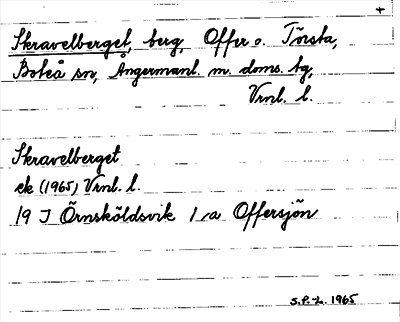 +
Skravelberget, berg, Offer o. Törsta,
Boteå sn, Ångermanl. m. doms. tg,
Vrnl. l.
Skravelberget
ek (1965) Vrnl. l.
19 J Örnsköldsvik 1 ca Offersjön
S.P.-L. 1965